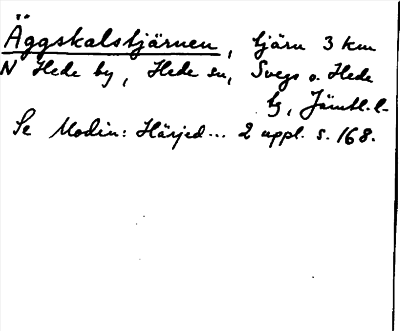 Äggskalstjärnen, tjärn 3 km
N Hede by, Hede sn, Svegs o. Hede
tg, Jämtl. l.
Se Modin: Härjed... 2 uppl. s. 168.